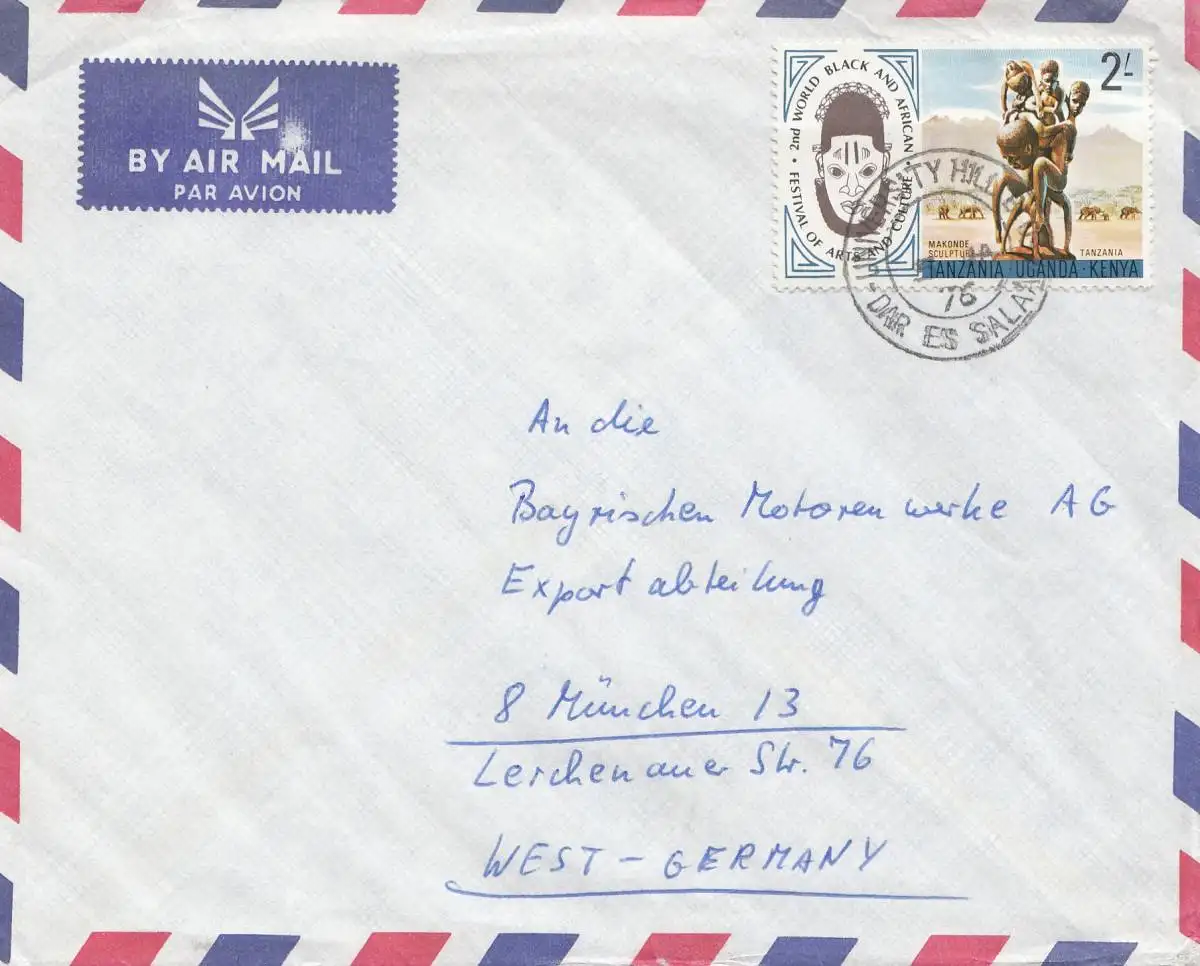 BY AIR MAIL
PAR AVION
2nd WORLD BLACK AND AFRICAN
FESTIVAL OF ARTS AND CULTURE
2/-
MAKONDE
SCULPTURE
TANZANIA
TANZANIA · UGANDA · KENYA
UNIVERSITY HILL
76
DAR ES SALAAM
An die
Bayrischen Motorenwerke AG
Exportabteilung
8 München 13
Lerchenauer Str. 76
WEST - GERMANY